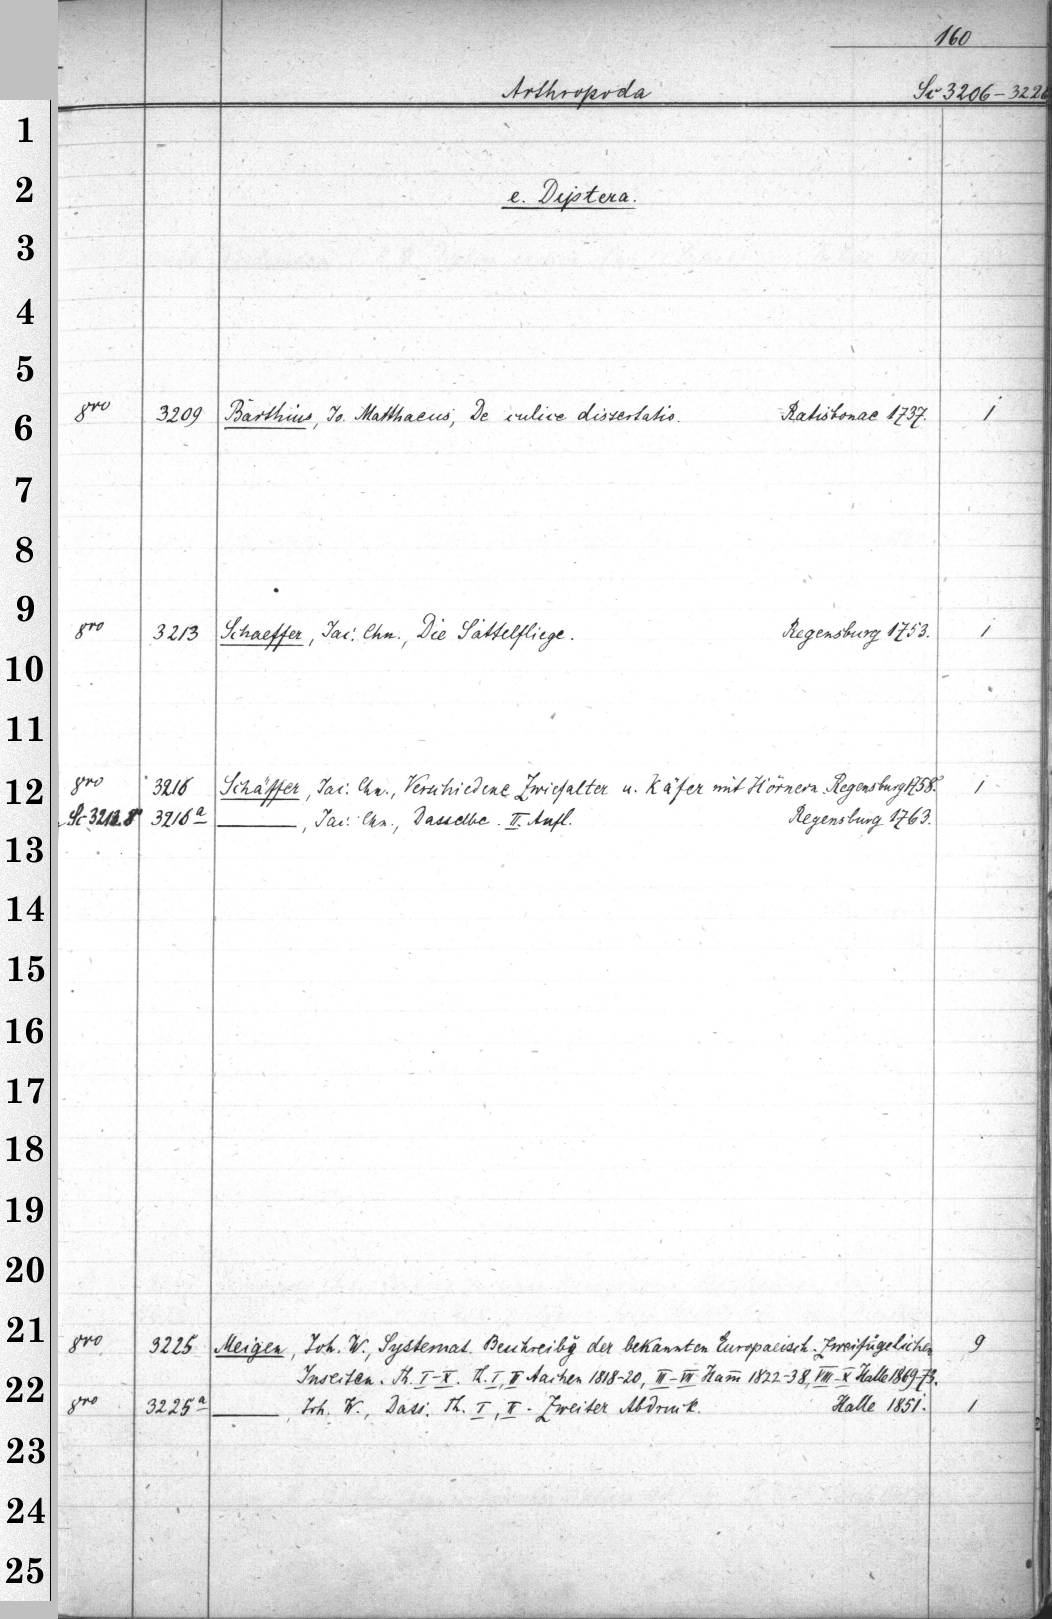 160
Arthropoda Sc 3206-3226
1
2 e. Diptera.
3
4
5
6 8vo 3209 Barthius, Jo. Matthaeus, De culice dissertatio. Ratisbonae 1737. 1
7
8
9 8vo 3213 Schaeffer, Jac. Chn., Die Sattelfliege. Regensburg 1753. 1
10
11
12 8vo 3216 Schäffer, Jac. Chn., Verschiedene Zwiefalter u. Käfer mit Hörnern. Regensburg 1758. 1
3216a ——, Jac. Chn., Dasselbe. II. Aufl. Regensburg 1763.
13
14
15
16
17
18
19
20
21 8vo 3225 Meigen, Joh. W., Systemat. Beschreibg der bekannten Europaeisch. Zweiflügelichen 9
22 Insecten. Th. I-X. Th. I, II Aachen 1818-20, III-VII Ham̅ 1822-38, VIII-X Halle 1869-73.
8vo 3225a ——, Joh. W., Dass. Th. I, II. Zweiter Abdruck. Halle 1851. 1
23
24
25